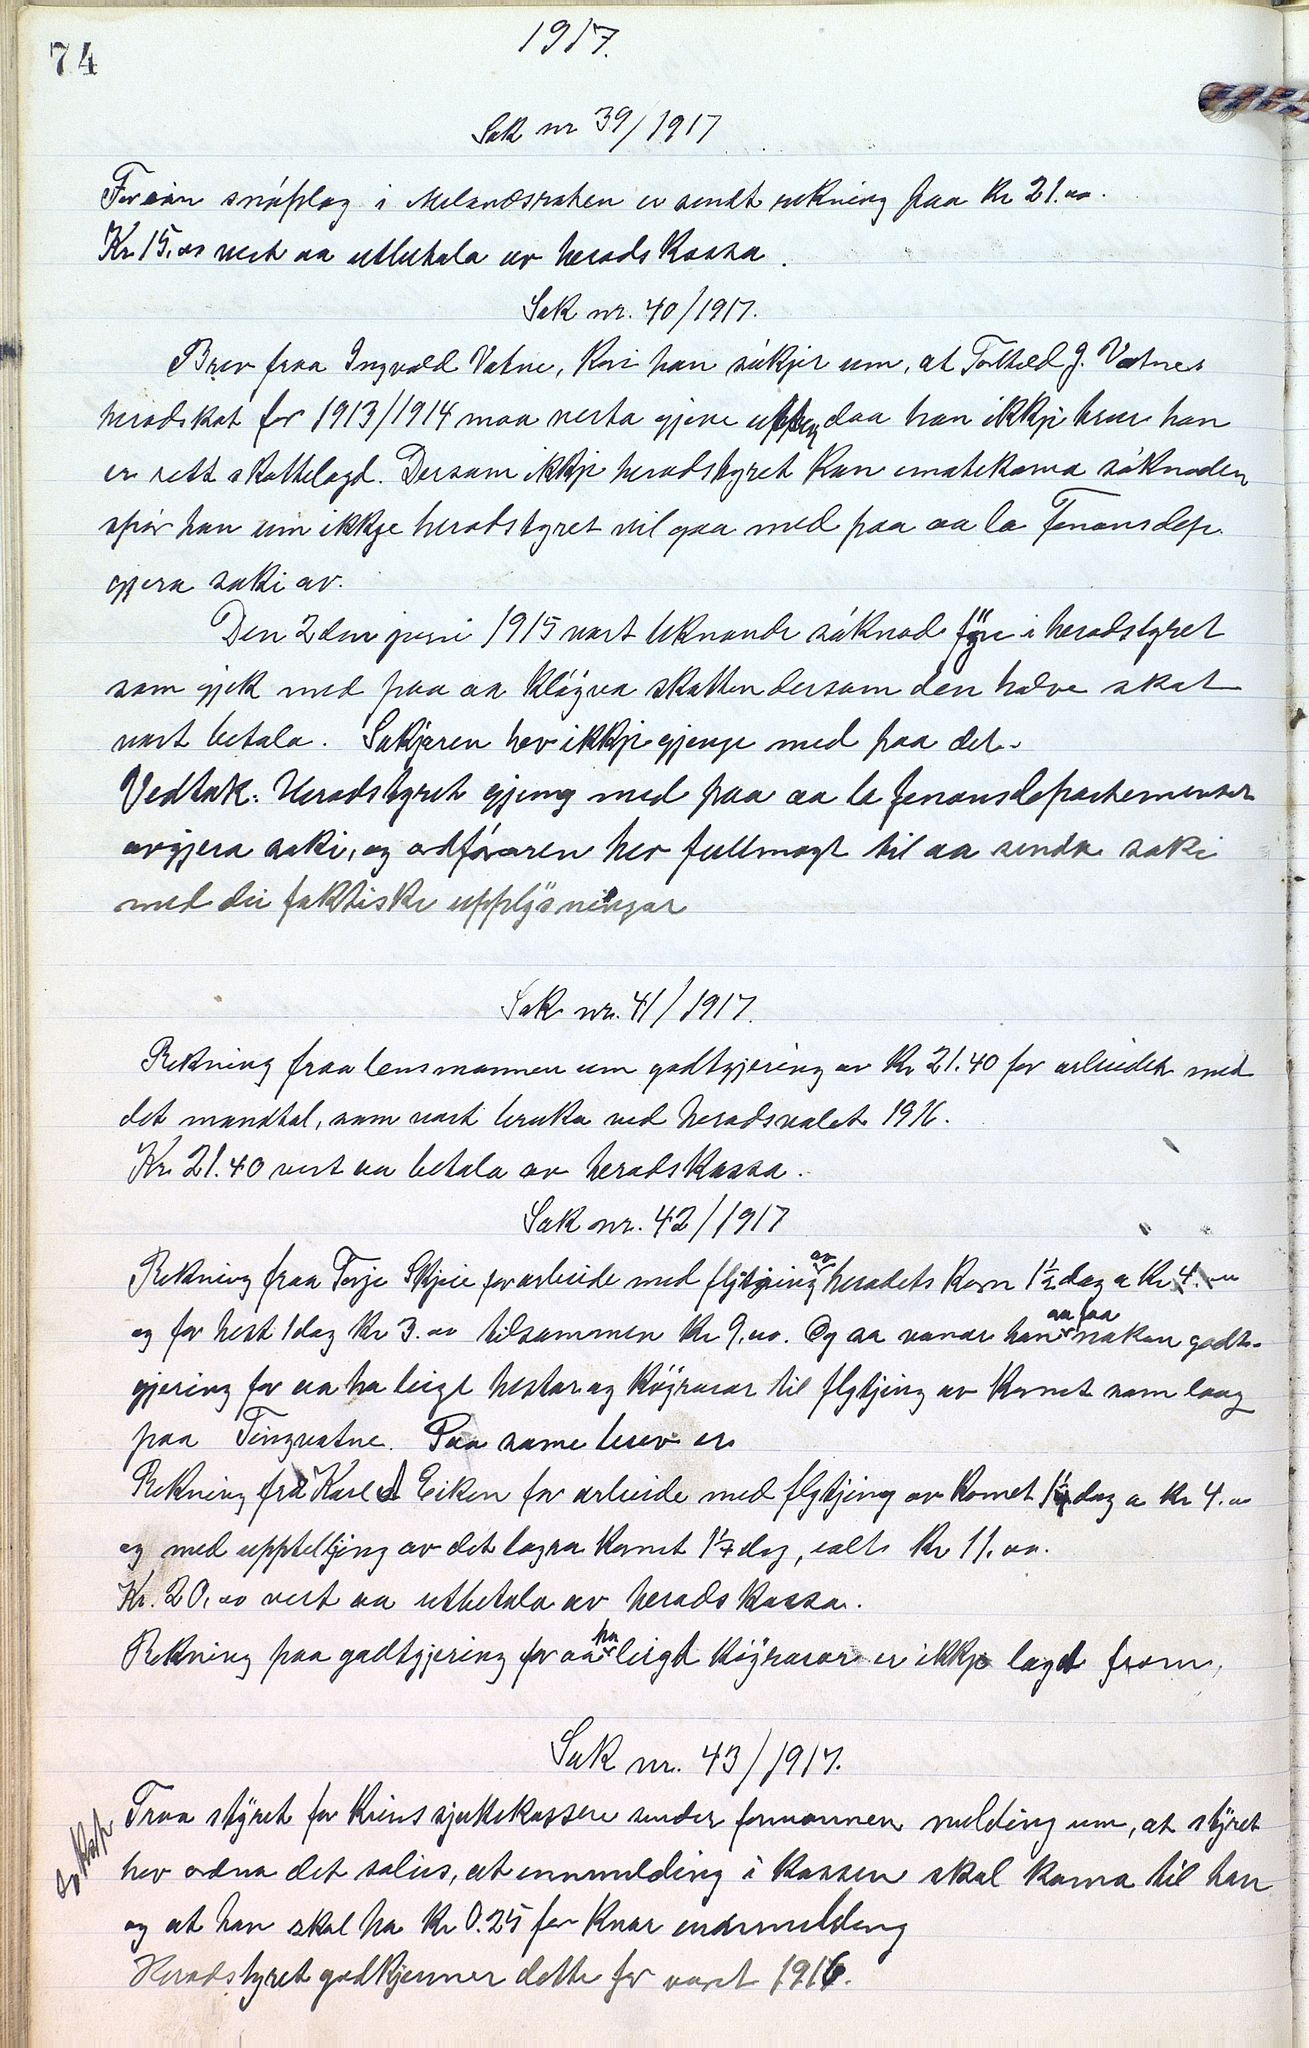 74
1917.
Sak nr 39/1917
For ein snöplog i Melandsroten er sendt rekning paa Kr 21.00.
Kr. 15.00 vert aa utbetala av heradskassa.
Sak nr. 40/1917.
Brev fraa Ingvald Vatne, kor han sökjer um, at Torkild J. Vatnes
heradskat for 1913/1914 maa verta gjeve upp daa han ikkje trur han
er rett skattelagd. Dersom ikkje heradstyret kan imøtekoma söknaden
spör han um ikkje heradstyret vil gaa med paa aa la Finansdep.
gjera saki av.
Den 2den juni 1915 vart liknande söknad fyre i heradstyret
som gjek med paa aa klögva skatten dersom den halve skat
vart betala. Sökjaren hev ikkje gjenge med paa det.
Vedtak: Heradstyret gjeng med paa aa la finansdepartementet
avgjera saki, og ordföraren hev fullmagt til aa senda saki
med dei faktiske upplysningar
Sak nr. 41/1917.
Rekning fraa lensmannen um godtgjering av Kr 21.40 for arbeidet med
det manntal, som vart bruka ved heradsvalet 1916.
Kr. 21.40 vert aa betala av heradskassa.
Sak nr. 42/1917
Rekning fraa Torje Skjeie for arbeide med flytjing av heradets korn 1½ dag a Kr 4.00
og for hest 1 dag Kr 3.00 tilsammen Kr 9.00. Og aa vonar han aa faa nokon godt-
gjering for aa ha leigt hestar og köyrarar til flytjing av kornet som laag
paa Tingvatne. Paa same brev er
Rekning fra Karl Eiken for arbeide med flytjing av kornet 1½ dag a kr 4.00
og med uppteljing av det lagra kornet 1¼ dag, ialt Kr 11.00.
Kr. 20.00 vert aa utbetala av heradskassa.
Rekning paa godtgjering for aa ha leigt köyrarar er ikkje lagt fram.
Sak nr. 43/1917.
Fraa styret for Krinssjukekassen sender formannen melding um, at styret
hev ordna det soleis, at innmelding i kassen skal koma til han
og at han skal ha Kr 0.25 for kvar innmelding
Heradstyret godkjenner dette for aaret 1916.